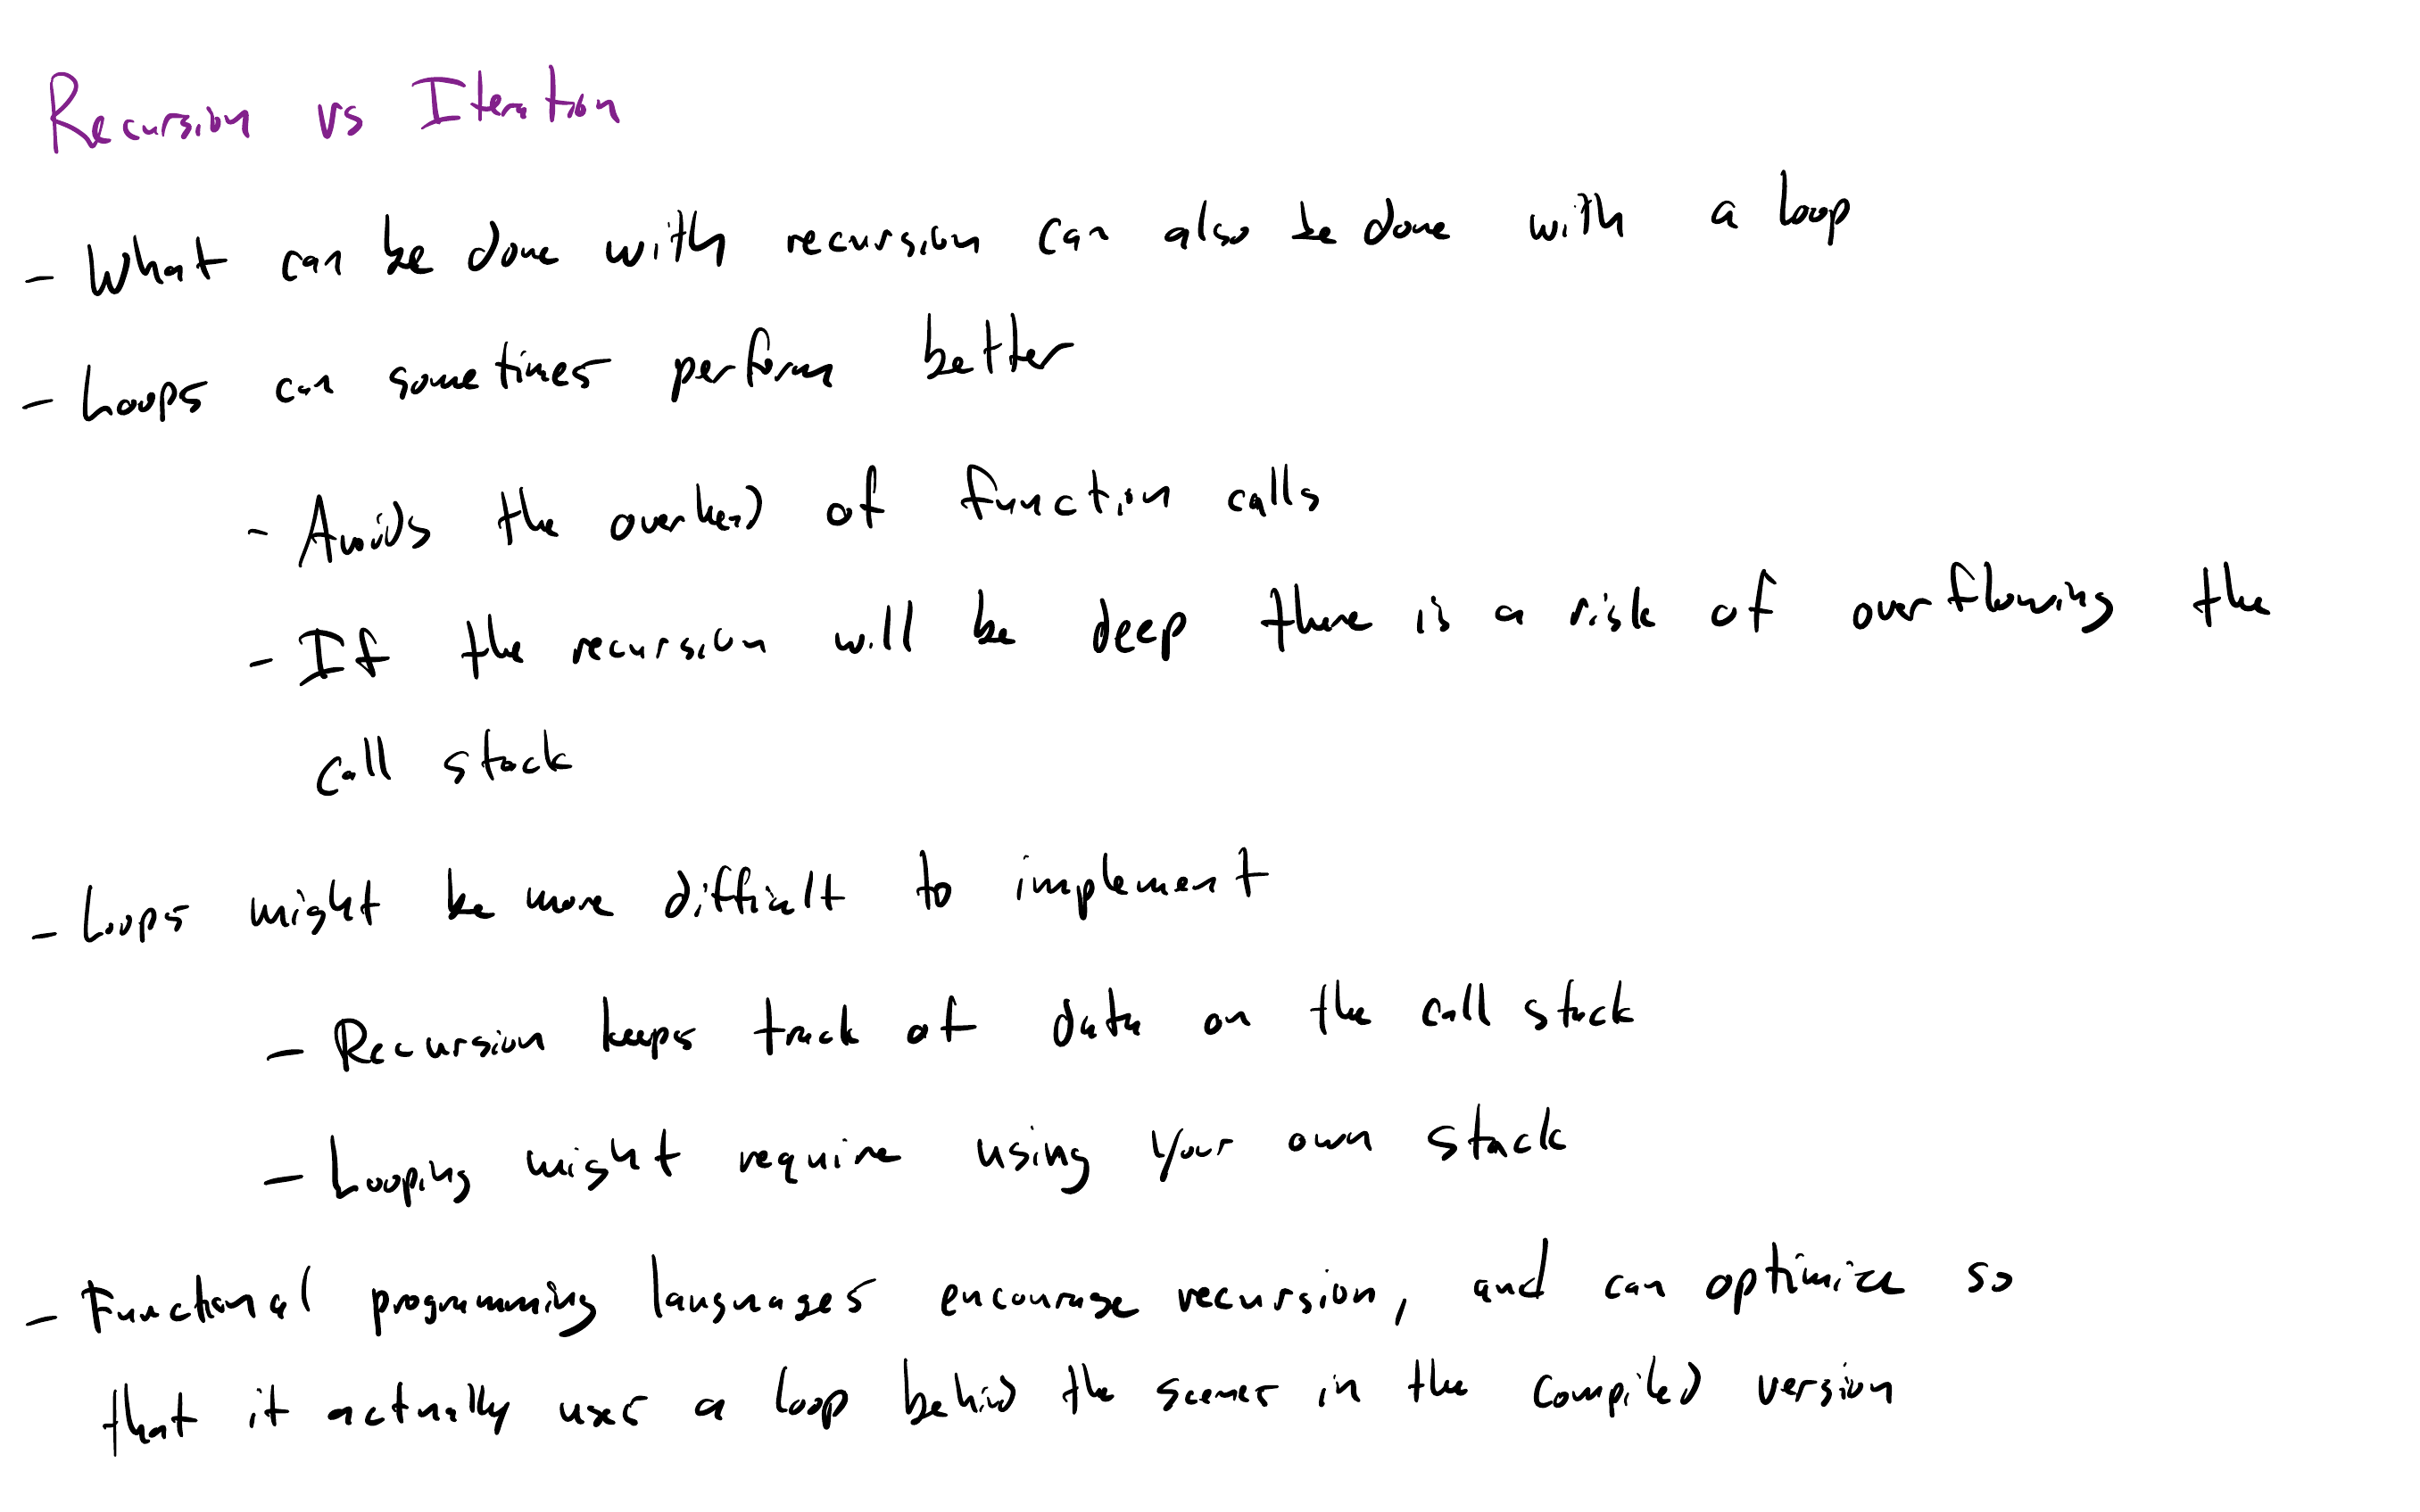 Recursion vs Iteration
- What can be done with recursion can also be done with a loop
- Loops can sometimes perform better
- Avoids the overhead of function calls
- If the recursion will be deep there is a risk of overflowing the
call stack
- Loops might be more difficult to implement
- Recursion keeps track of data on the call stack
- Looping might require using your own stack
- Functional programming languages encourage recursion, and can optimize so
that it actually uses a loop behind the scenes in the compiled version